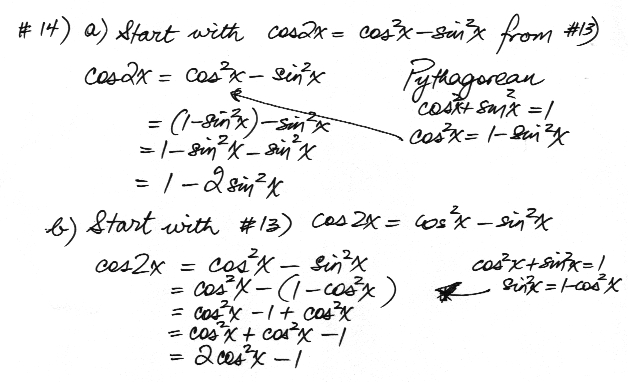 # 14) a) Start with cos2x = cos²x - sin²x from #13)
cos2x = cos²x - sin²x
Pythagorean
cos²x + sin²x = 1
= (1-sin²x) - sin²x
cos²x = 1 - sin²x
= 1 - sin²x - sin²x
= 1 - 2sin²x
b) Start with #13) cos2x = cos²x - sin²x
cos2x = cos²x - sin²x
cos²x + sin²x = 1
= cos²x - (1 - cos²x)
sin²x = 1 - cos²x
= cos²x - 1 + cos²x
= cos²x + cos²x - 1
= 2cos²x - 1